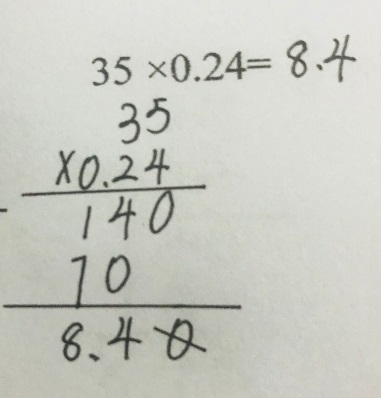 35 ×0.24= 8.4
35
×0.24
140
70
8.40